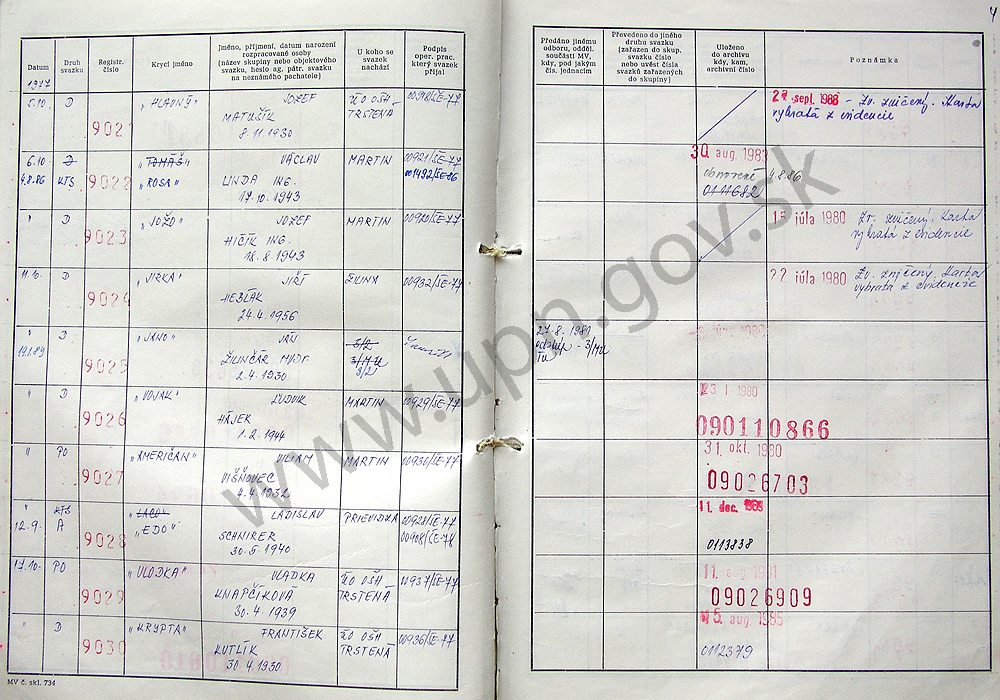 4
Datum
Druh svazku
Registr. číslo
Krycí jméno
Jméno, příjmení, datum narození
rozpracované osoby
(název skupiny nebo objektového
svazku, heslo ag. pátr. svazku
na neznámého pachatele)
U koho se
svazek
nachází
Podpis
oper. prac.
který svazek
přijal
Předáno jinému
odboru, odděl.
součásti MV,
kdy, pod jakým
čís. jednacím
Převedeno do jiného
druhu svazku
(zařazen do skup.
svazku číslo
nebo uvést čísla
svazků zařazených
do skupiny)
Uloženo
do archivu
kdy, kam,
archivní číslo
Poznámka
1977
5.10. D 9021 „HLAVNÝ" JOZEF
MATUŠÍK
8.11.1930
ÚO OŠH
TRSTENÁ
00918/ŠE-77
27. sept. 1988 - Zv. zničený. Karta
vybratá z evidencie
6.10 D „TOMÁŠ" VÁCLAV MARTIN 00921/ŠE-77
4.8.86 KTS 9022 „ROSA" LINDA ING. 001492/ŠE-86
17.10.1943
30. aug. 1983
obnovené 4.8.86
0111682
" D 9023 „JOŽO" JOZEF MARTIN 00920/ŠE-77
HIČÍK ING.
18.8.1943
15. júla 1980 Zv. zničený. Karta
vybratá z evidencie
11.10. D 9024 „JIRKA" JIŘÍ ŽILINA 00932/ŠE-77
24.4.1956
22. júla 1980 Zv. zničený. Karta
vybratá z evidencie
" D 9025 „JANO" JÁN
ŽILINČÁR
2.4.1930
27.8.1981
" D 9026 „VOJAK" ĽUDOVÍK MARTIN 00929/ŠE-77
HÁJEK
1.2.1944
1980
090110866
" PO 9027 „AMERIČAN" VILIAM MARTIN 00930/ŠE-77
VIŠŇOVEC
4.4.1932
31. okt. 1980
09026703
" KTS „LACO" LADISLAV PRIEVIDZA 00928/ŠE-77
12.9. A 9028 „EDO" SCHNIRER 00908/ČE-78
30.5.1940
11. dec. 1985
0113838
17.10. PO 9029 „VLODKA" VLADKA ÚO OŠH 00937/ŠE-77
KNAPČÍKOVÁ TRSTENÁ
30.4.1939
11. aug. 1981
09026909
" D 9030 „KRYPTA" FRANTIŠEK ÚO OŠH 00936/ŠE-77
KUTLÍK TRSTENÁ
30.4.1930
aug. 1985
0112379
MV č. skl. 734
www.upn.gov.sk